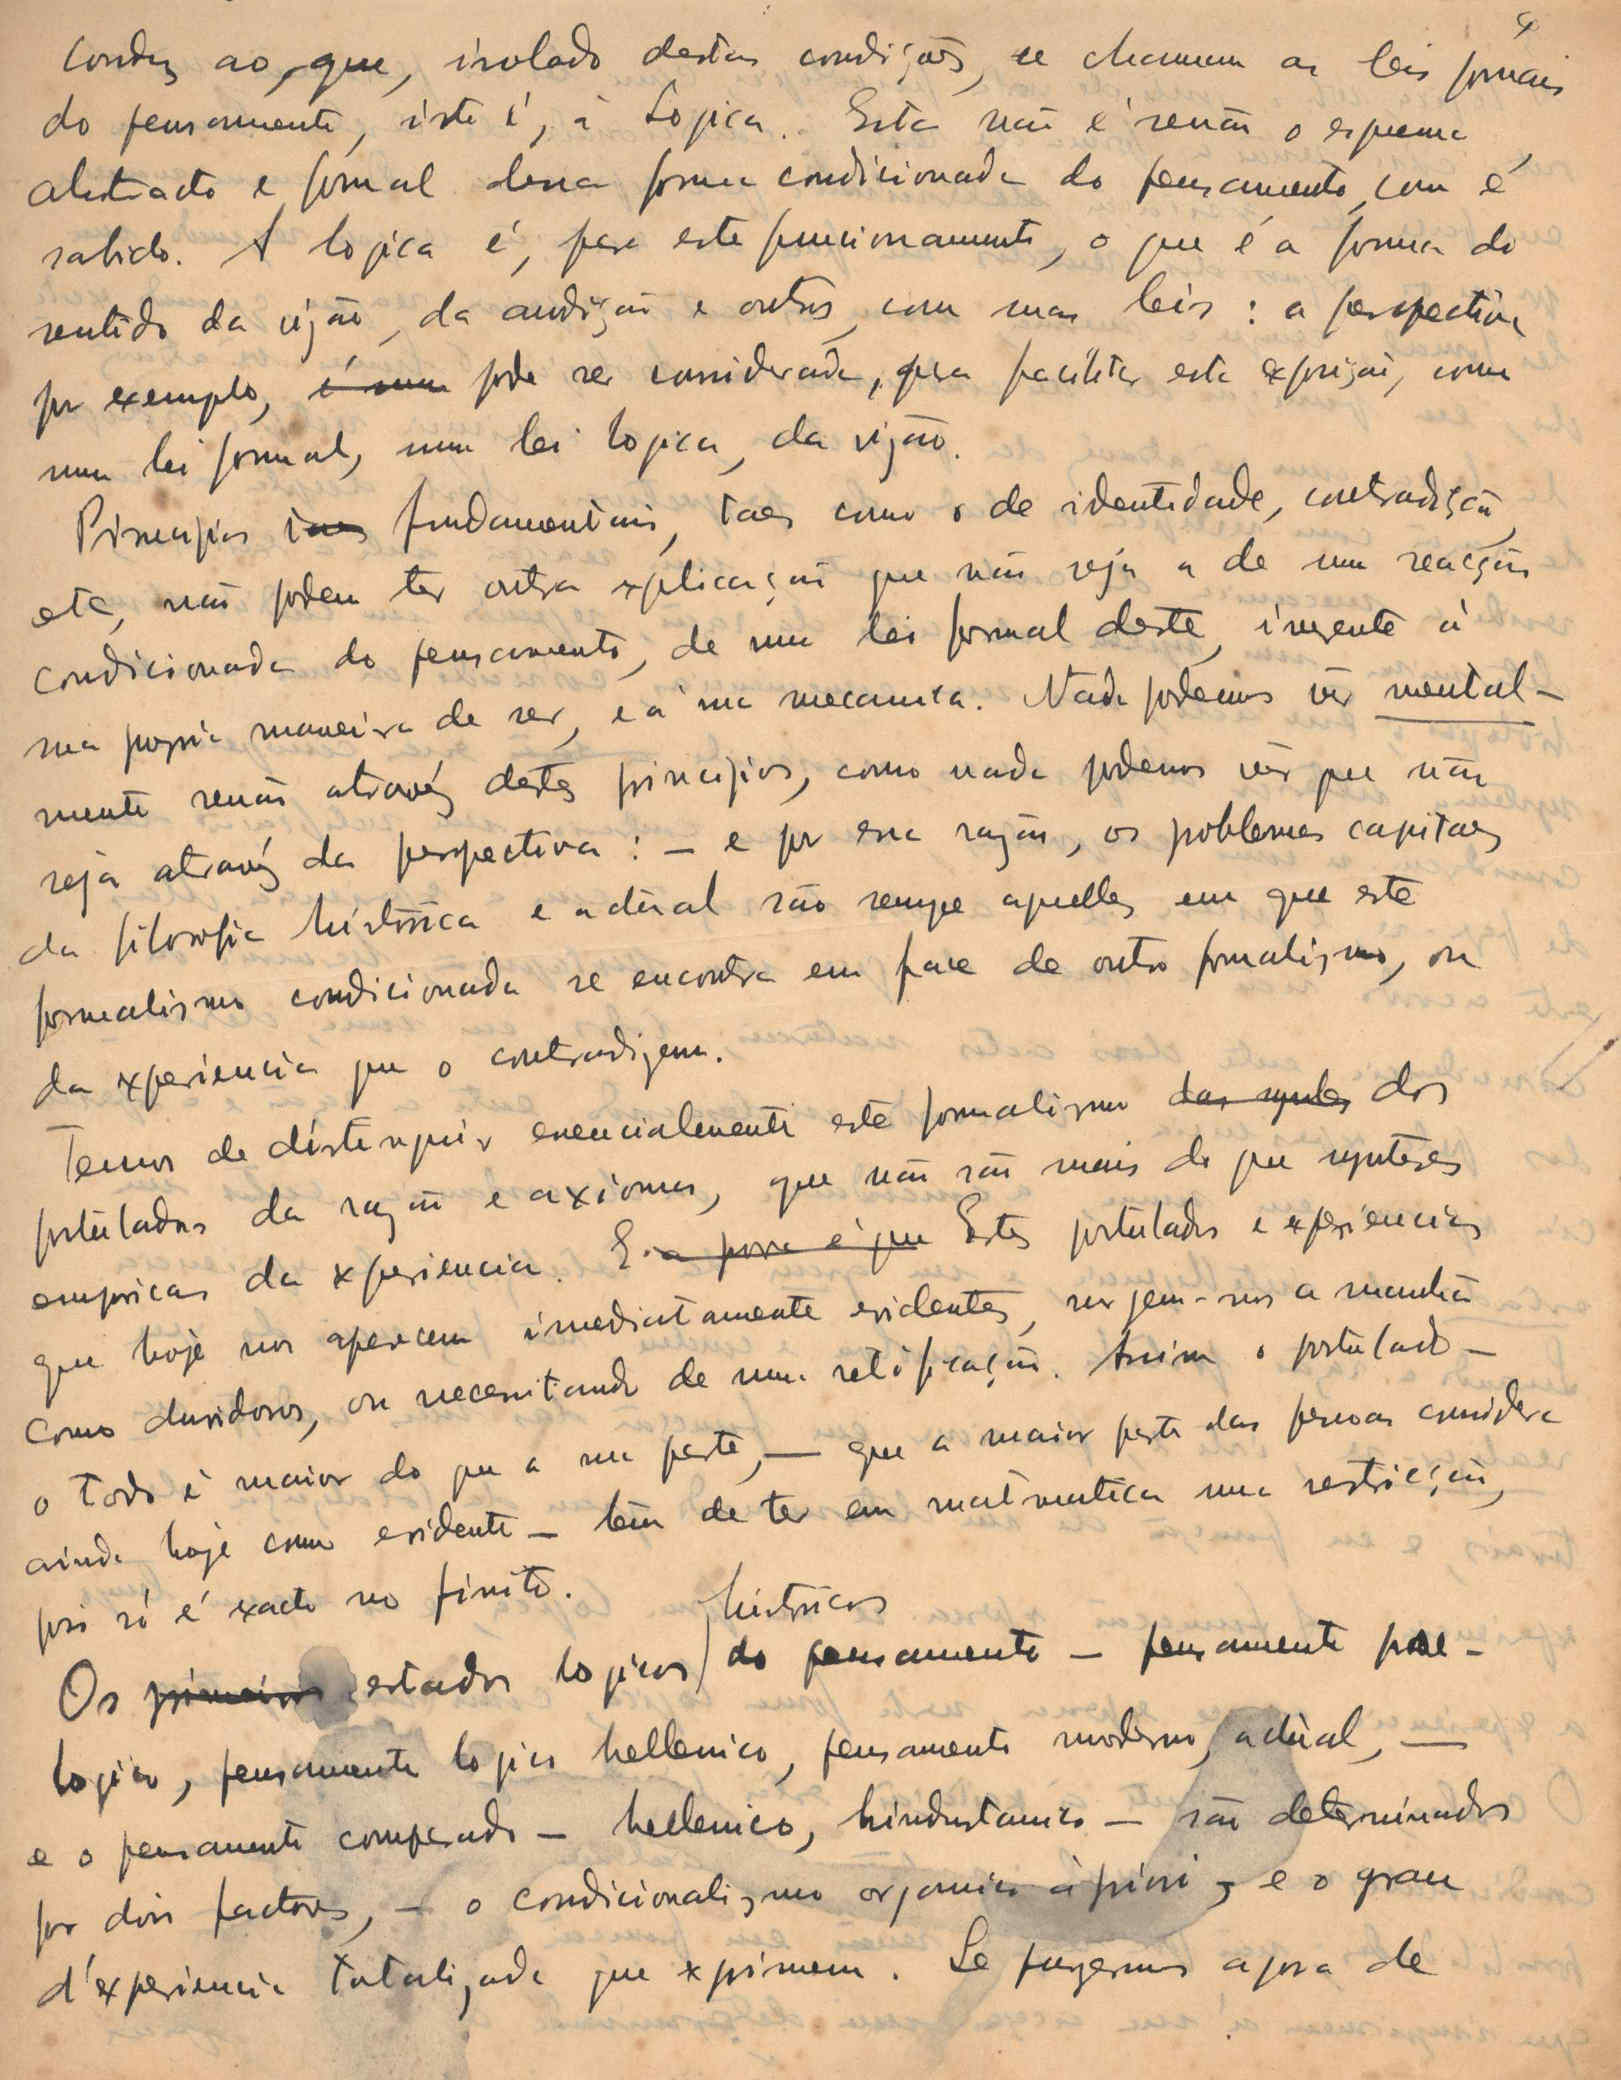 conduz ao que, isolado destas condições, se chamam as leis formais
do pensamento, isto é, á Logica. Esta não é senão o esquema
abstracto e formal dessa forma condicionada do pensamento, com é
sabido. A logica é, para este funcionamento, o que é a forma do
sentido da vizão, da audição e outros, com suas leis: a perspectiva
por exemplo, é uma pode ser considerada, para facilitar esta exposição, como
uma lei formal, uma lei logica, da vizão.
Principios taes fundamentais, taes como o de identidade, contradição,
etc, não podem ter outra explicação que não seja a de uma reacção
condicionada do pensamento, de uma lei formal deste, inerente á
sua propria maneira de ser, e á sua mecanica. Nada podemos vêr mental-
mente senão atravéz destes principios, como nada podemos vêr que não
seja atravéz da perspectiva: — e por essa razão, os problemas capitaes
da filosofia histórica e actual são sempre aquelles em que este
formalismo condicionado se encontra em face de outro formalismo, ou
da experiencia que o contradizem.
Temos de distinguir essencialmente este formalismo das dos
postulados da razão e axiomas, que não são mais do que synteses
empiricas da experiencia. E a prova é que Estes postulados e experiencias
que hoje nos aparecem imediatamente evidentes, surgem-nos amanhã
como duvidosos, ou necessitando de uma retificação. Assim o postulado —
o todo é maior do que a sua parte, — que a maior parte das pessoas considera
ainda hoje como evidente — tem de ter em matematica uma restricção,
pois só é exacto no finito.
historicos
Os primeiros estados logicos do pensamento — pensamento pre-
logico, pensamento logico hellenico, pensamento moderno, actual, —
e o pensamento comparado — hellenico, hindustanico — são determinados
por dois factores, — o condicionalismo organico á priori, e o grau
d'experiencia totalizada que exprimem. Se fizermos agora de